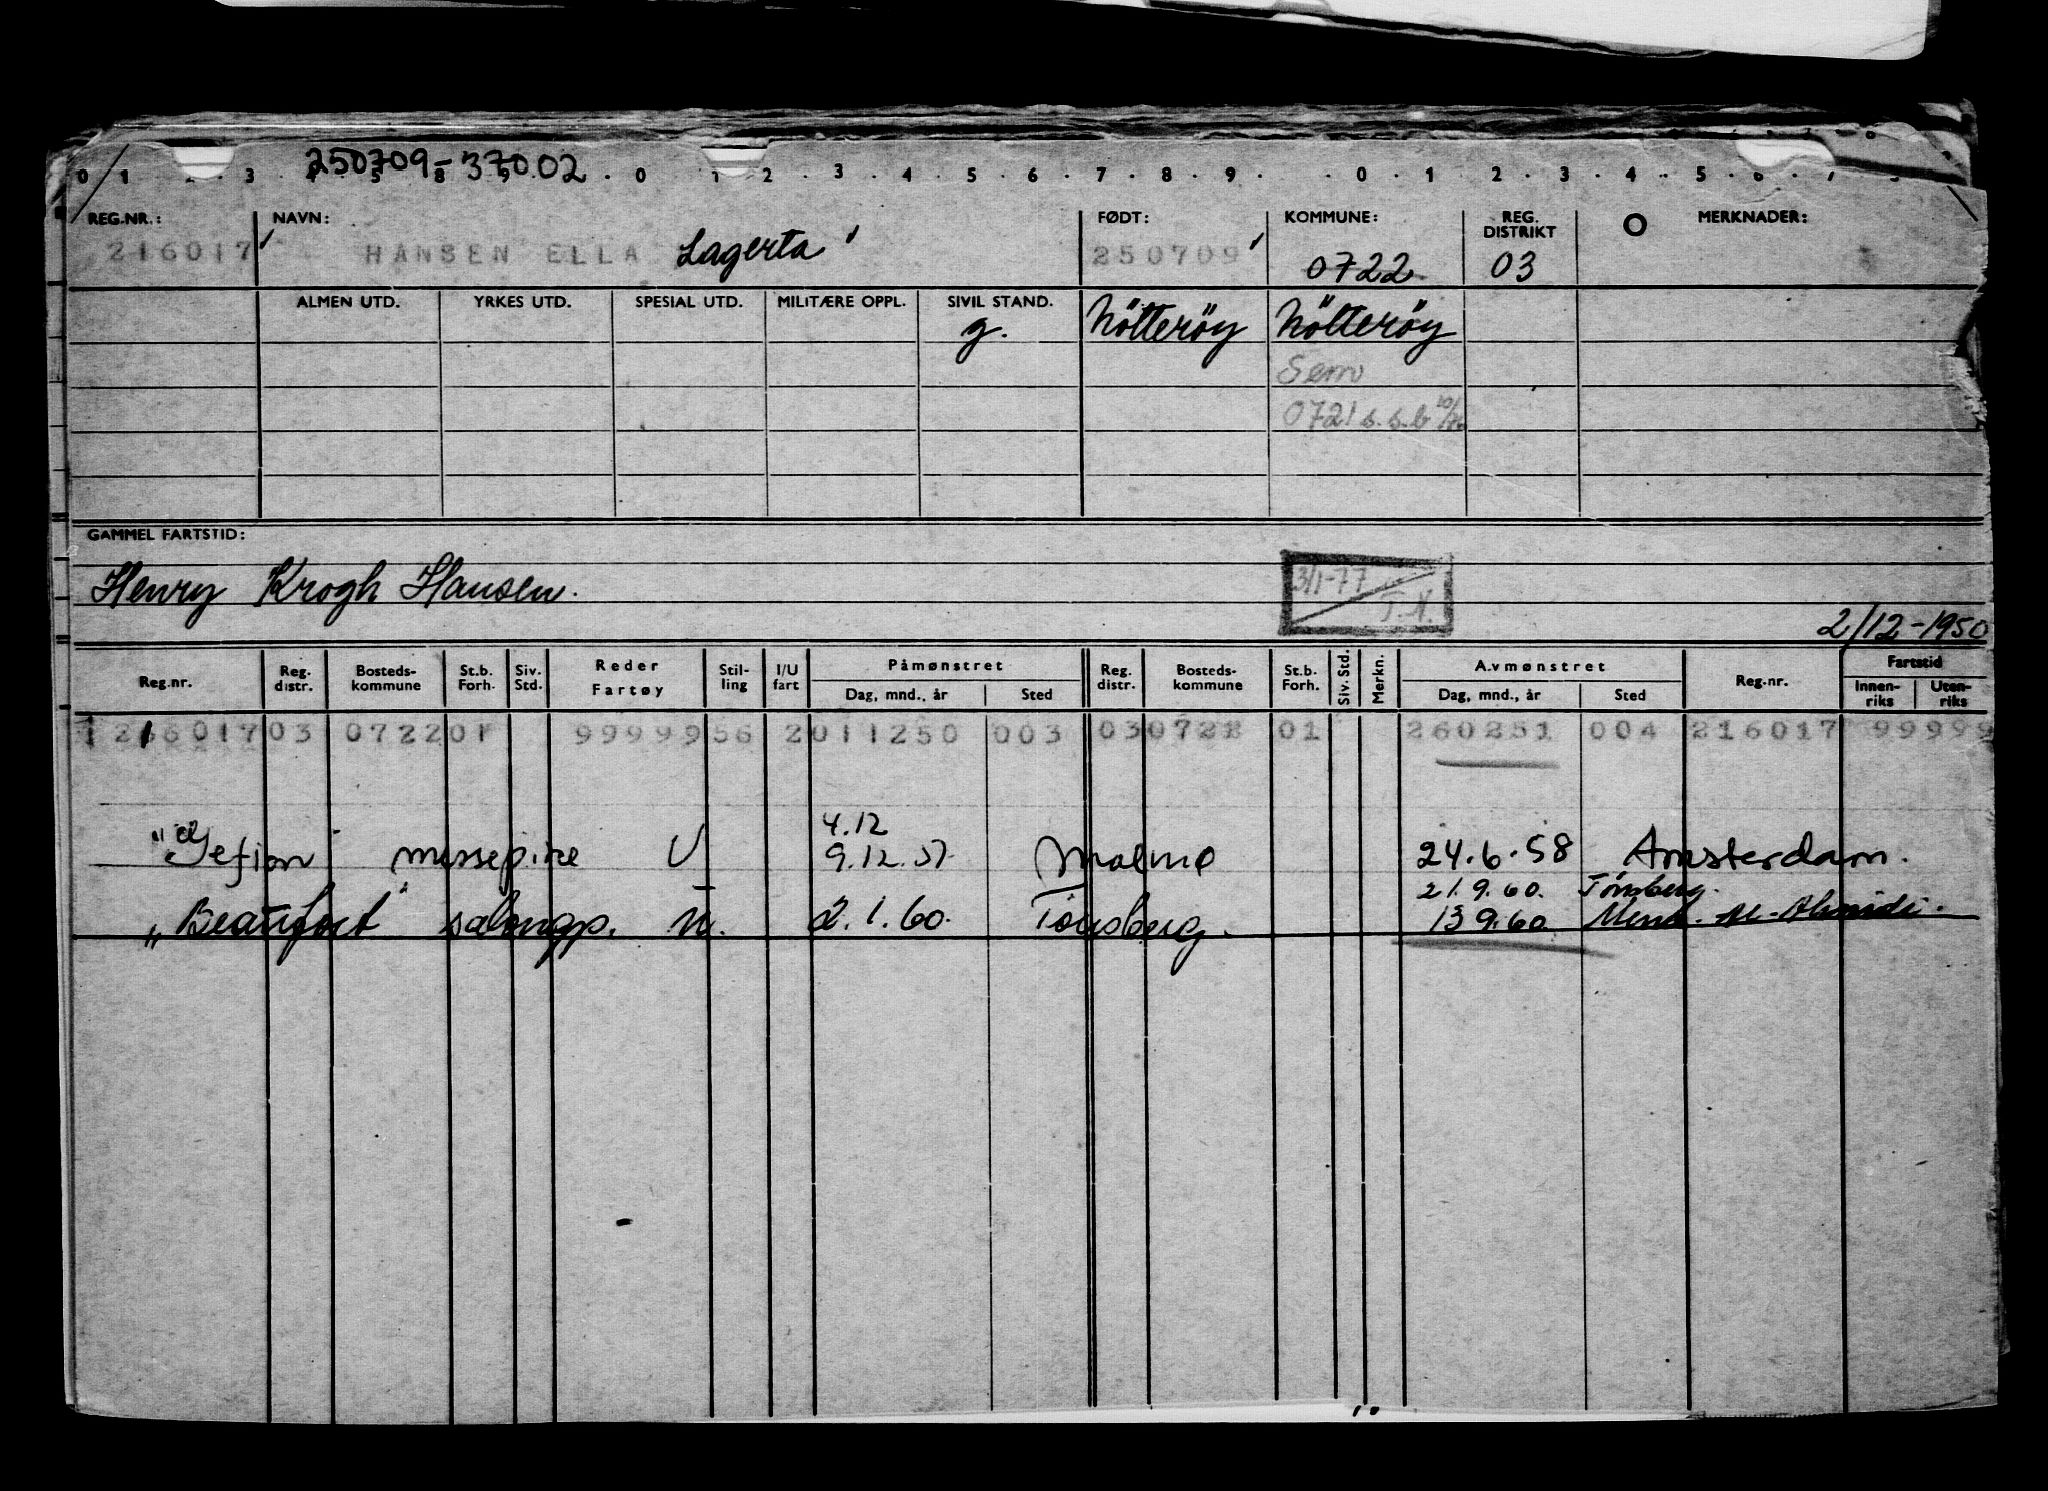 250709-37002
0 1 2 3 4 5 8 9 0 1 2 3 4 5 6 7 8 9 0 1 2 3 4 5 6 7
REG.NR.: NAVN: FØDT: KOMMUNE: REG. DISTRIKT MERKNADER:
216017 HANSEN ELLA Lagerta 250709 0722 03
ALMEN UTD. YRKES UTD. SPESIAL UTD. MILITÆRE OPPL. SIVIL STAND.
g. Nötteröy Nötteröy
Sem
0721 s.s.b
GAMMEL FARTSTID:
3/1-77
Henry Krogh Hansen.
T.N.
2/12-1950
Reg.nr. Reg. distr. Bosteds-kommune St.b. Forh. Siv. Std. Reder Fartøy Stil-ling I/U fart Påmønstret Dag, mnd., år Sted Reg. distr. Bosteds-kommune St.b. Forh. Siv. Std. Merkn. Avmønstret Dag, mnd., år Sted Reg.nr. Fartstid Innen-riks Uten-riks
1 216017 03 0722 01 99999 56 2 011250 003 03 0722 01 260251 004 216017 99999
4.12
"Gefion messepike U 9.12.57. Malmø 24.6.58 Amsterdam.
21.9.60. Tønsberg.
"Beaufort" salongp. U. 2.1.60. Tønsberg. 13 9.60. Al-Ahmadi.